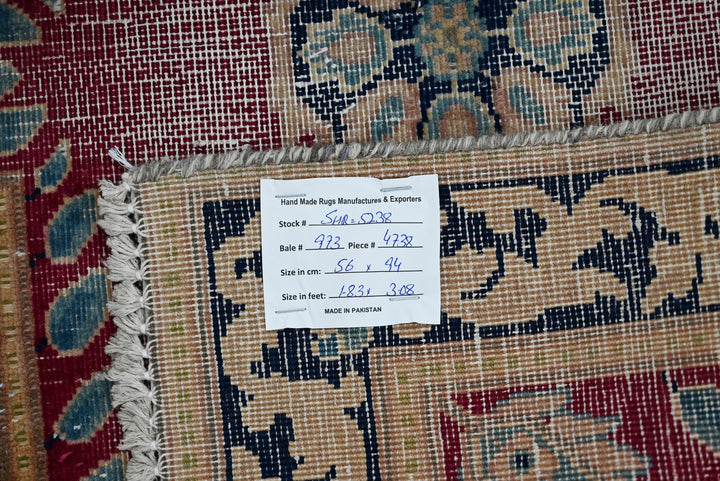 Hand Made Rugs Manufactures & Exporters
Stock # SHR=5238
Bale # 973 Piece # 4738
Size in cm: 56 x 94
Size in feet: 1-83 x 3-08
MADE IN PAKISTAN